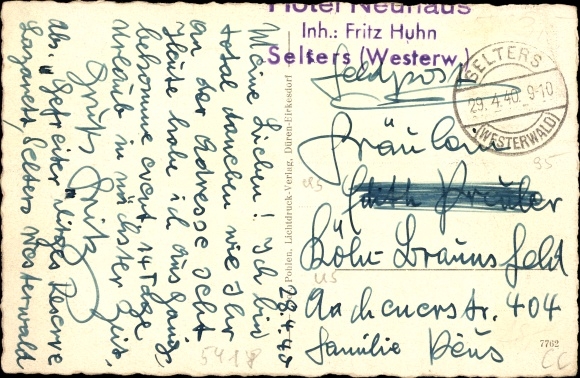 Hotel Neuhaus
Inh.: Fritz Huhn
Selters (Westerw.)
SELTERS
29.4.40. 9-10
(WESTERWALD)
Feldpost
Fräulein
Edith Preuler
Köln-Braunsfeld
Aachenerstr. 404
Familie Peus
28.4.40
Meine Lieben! Ich bin
total daneben wie Ihr
an der Adresse seht
Heute habe ich Ausgang,
bekomme event. 14 Tage
Urlaub in nächster Zeit.
Gruß Fritz
Ab. Gefreiter Reserve
Lazarett Selters Westerwald
Pohlen, Lichtdruck-Verlag, Düren-Birkesdorf
7762
5418
95